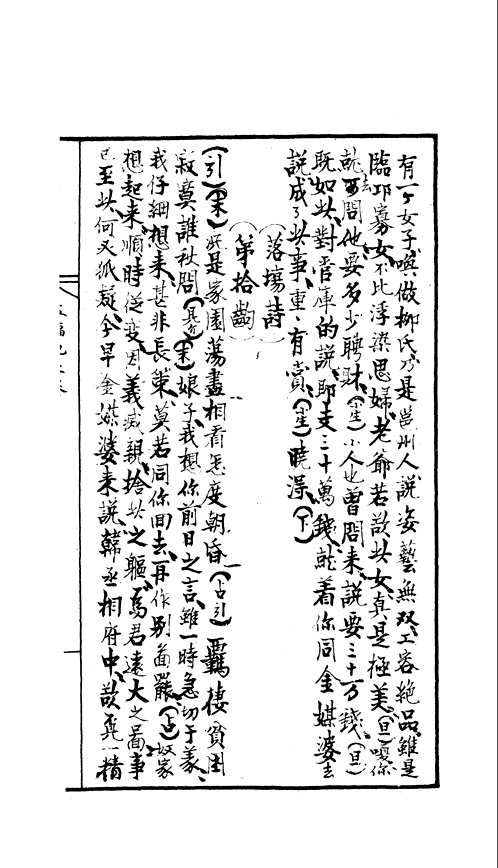 有一个女子喚做柳氏乃是邕州人說姿藝無双工容絕品雖是
臨邛寡女不比浮染思婦老爺若欲此女真是極美(旦)嗄你
就去問他要多少聘財(小生)小人也曾問來說要三十万錢(旦)
既如此對管庫的說即支三十萬錢就着你同金媒婆去
說成了此事重〻有賞(小生)曉得(下)
落場詩
第拾齣
(引)(末)家園蕩盡相看怎度朝昏(占引)羈棲貧困
寂寞誰社問(末)娘子我想你前日之言雖一時急切于義
我仔細想來甚非長策莫若同你回去再作別啚罷(占)奴家
想起來順時従变因義滅親捨此之軀爲君遠大之啚事
已至此何又狐疑今早金媒婆來說韓丞相府中欲覓一精